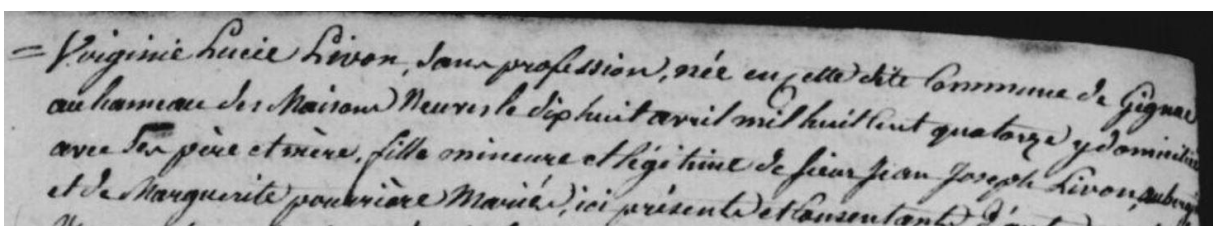 = Virginie Lucie Livon, sans profession, née en cette dite Commune de Gignac
au hameau des Maisons Neuves le dix huit avril mil huit cent quatorze y domiciliée
avec ses père et mère, fille mineure et légitime de sieur Jean Joseph Livon, auberg
et de Marguerite pourrière Mariés, ici présents et consentants, d'autre